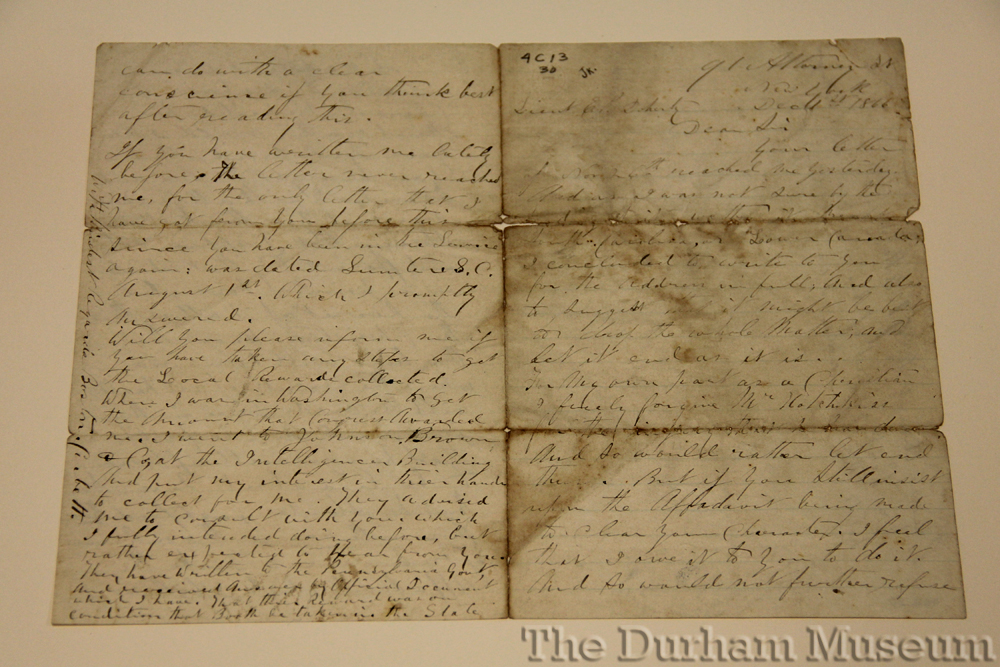 can do with a clear
conscience if you think best
after reading this.
If you have written me lately
before, the letter never reached
me, for the only letter that I
have got from you before this
since you have been in the Service
again: was dated Sumter S.C.
August 1st. Which I promptly
Answered.
Will you please inform me if
you have taken any steps to get
the Local Rewards collected.
When I was in Washington to get
the Amount that Congress Awarded
me. I went to Johnson, Brown
& Co, at the Intelligencer Building
And put my interest in their hands
to collect for me. They advised
me to consult with you, which
I fully intended doing before, but
rather expected to hear from you.
They have written to the Pensylvania Gov't
And received Answer by Official Document
which I have. That their Reward was on
condition that Booth be taken in the State
With Kindest Regards Boston Corbett.
4C13
30 JR.
91 Attorney St
New York
Lieut Doherty Dec 1st 1866
Dear Sir
Your letter
of reached me yesterday
And as I was not sure by the
or Lower
I concluded to write to you
for the Address in full, And also
to suggest might be best
to drop the whole Matter, and
let it end as it is.
For My own part as a Christian
I freely forgive Mr Hotchkiss
And so would rather let end
the . . But if You Still insist
upon the Affidavit being made
to clear Your Character. I feel
that I owe it to You to do it.
And so would not further refuse
The Durham Museum